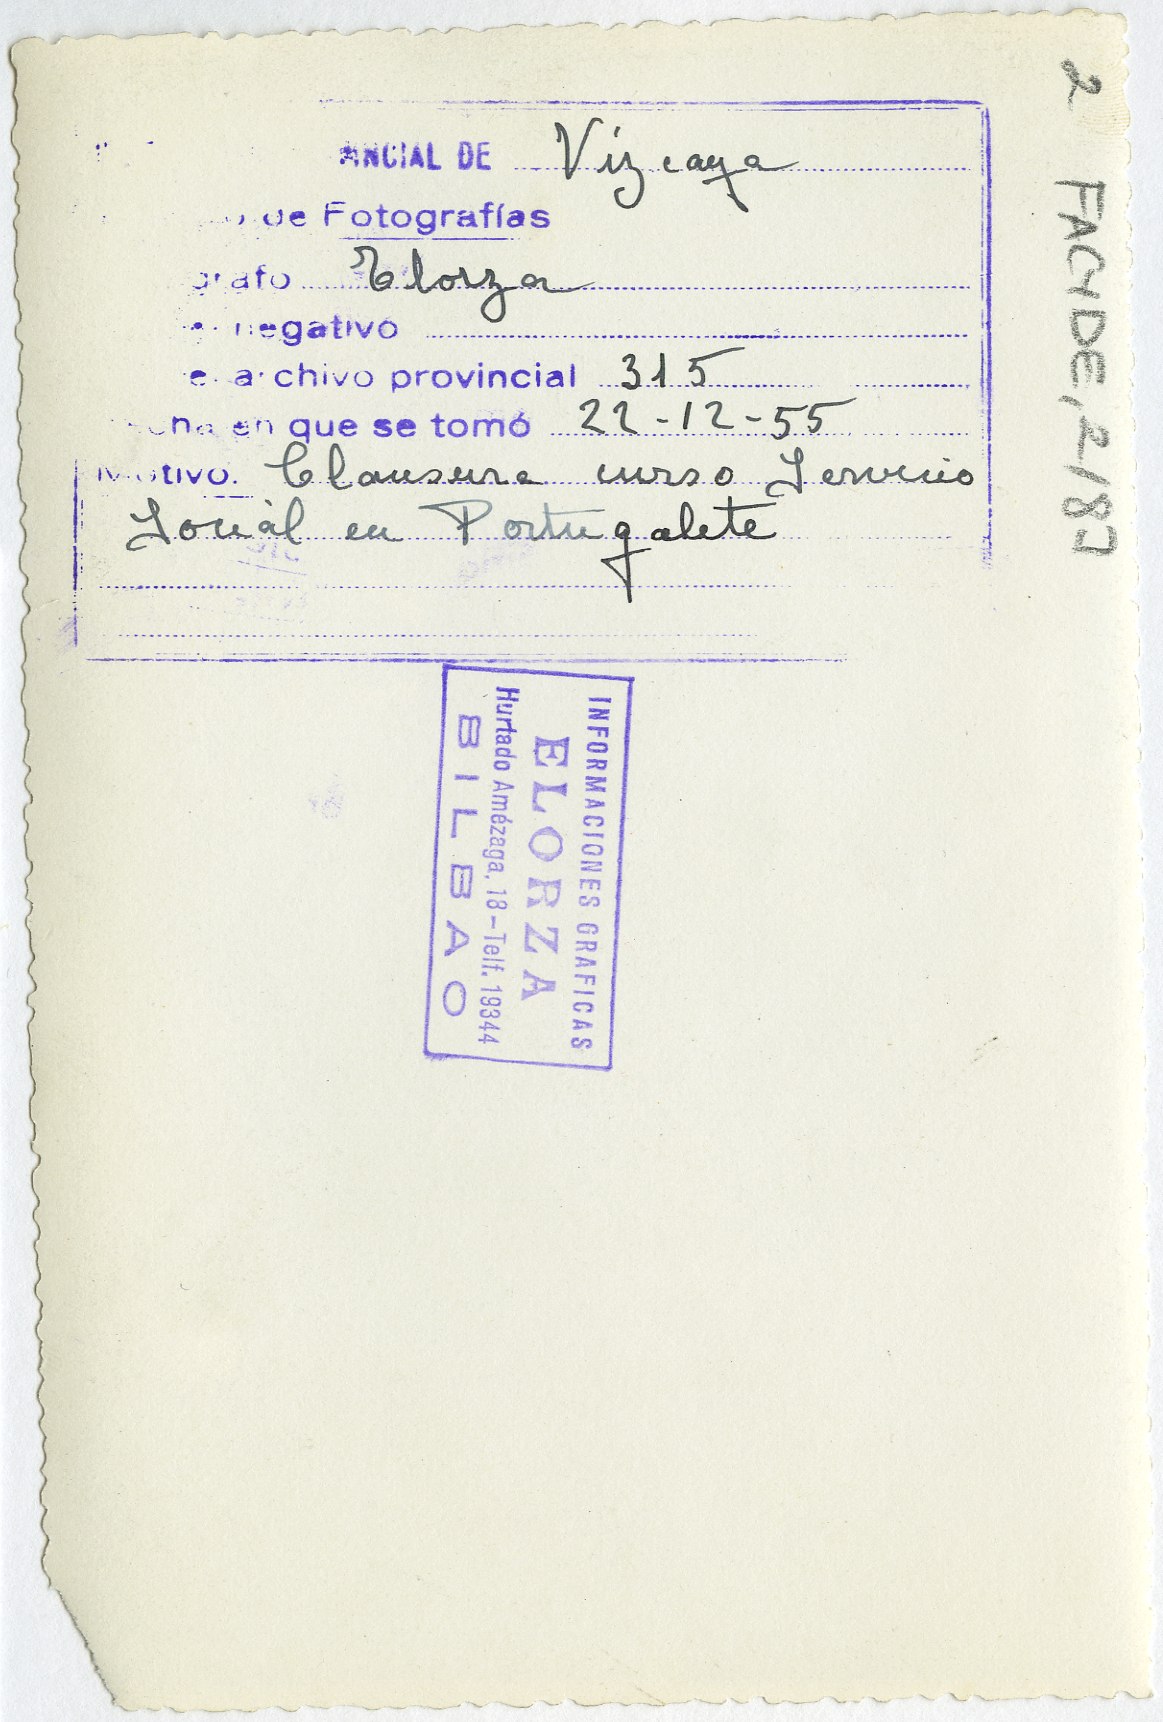 DE Vizcaya
de Fotografías
Elorza
negativo
archivo provincial 315
en que se tomó 22-12-55
Motivo. Clausura curso Servicio
Social en Portugalete
INFORMACIONES GRAFICAS
ELORZA
Hurtado Amézaga, 18-Telf. 19344
BILBAO
2 FACNDE, 2/87